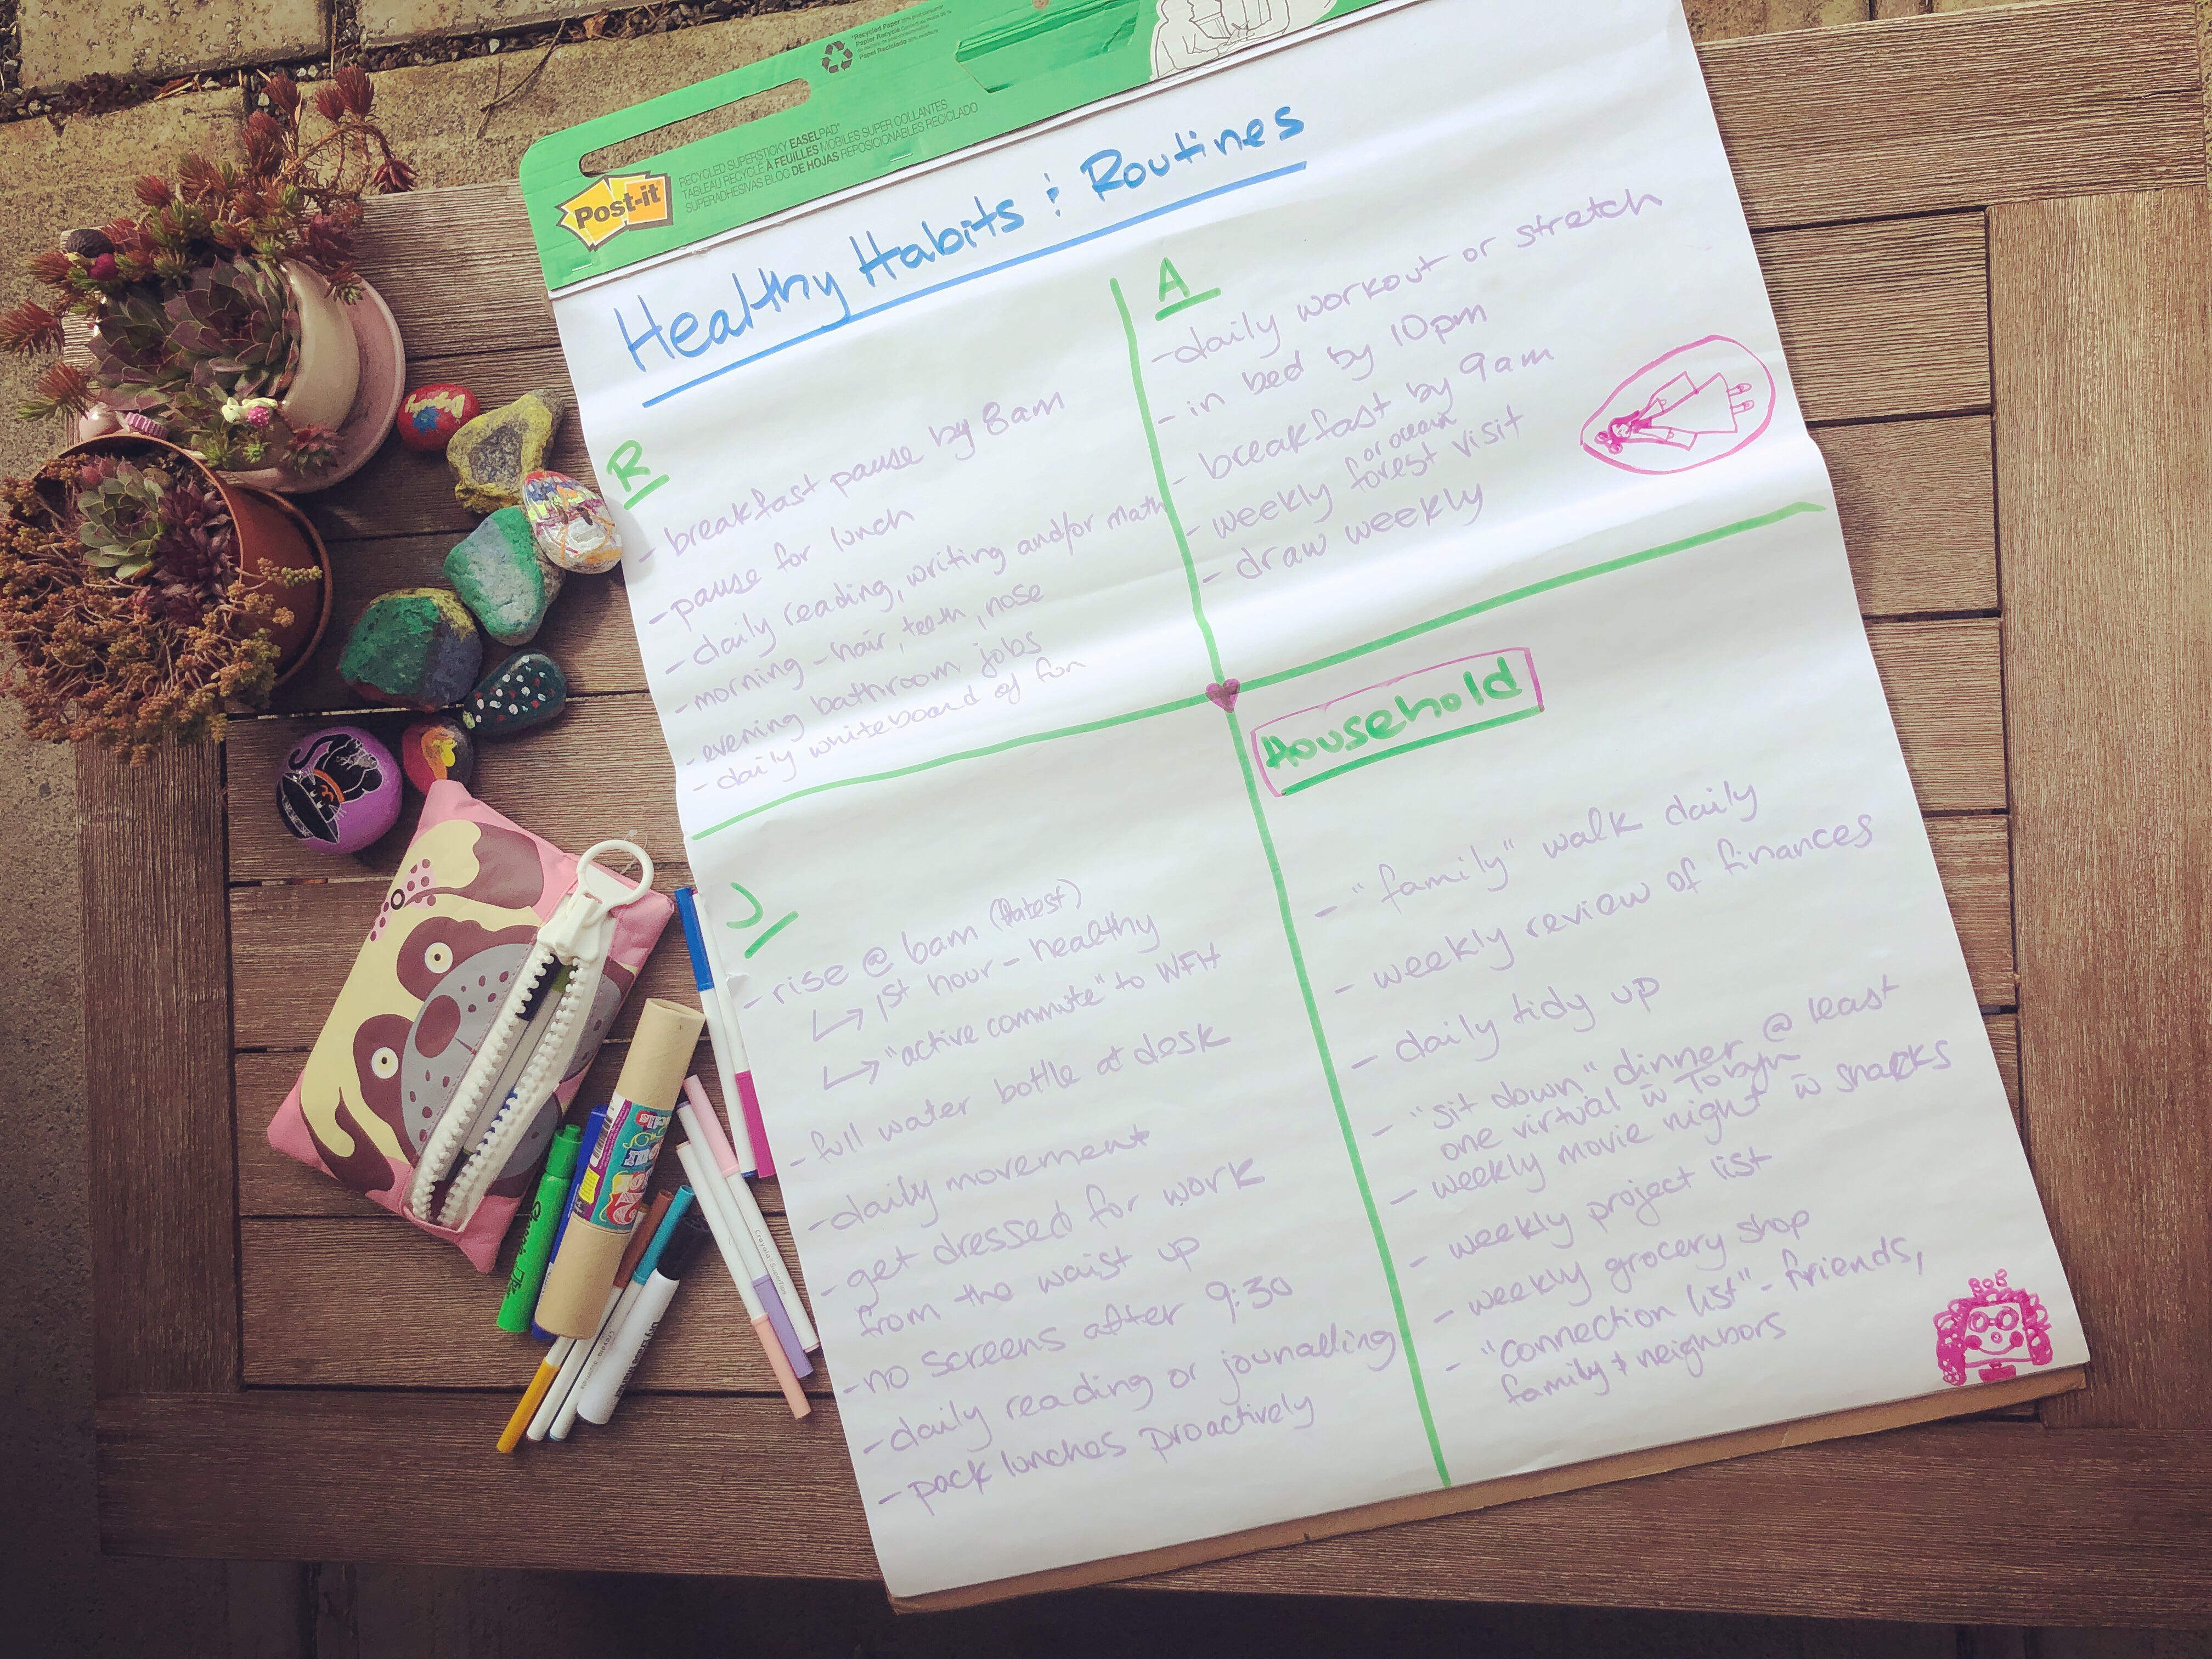 Post-it
RECYCLED SUPERSTICKY EASELPAD*
TABLEAU RECYCLÉ À FEUILLES MOBILES SUPER COLLANTES
SUPERADHESIVAS BLOC DE HOJAS REPOSICIONABLES RECICLADO
Healthy Habits : Routines
R
- breakfast pause by 8am
- pause for lunch
- daily reading, writing and/or math
- morning - hair, teeth, nose
- evening bathroom jobs
- daily whiteboard of fun
A
- daily workout or stretch
- in bed by 10pm
- breakfast by 9am
or ocean
- weekly forest visit
- draw weekly
J
- rise @ 6am (latest)
↳ 1st hour - healthy
↳ "active commute" to WFH
- full water bottle at desk
- daily movement
- get dressed for work
from the waist up
- no screens after 9:30
- daily reading or journalling
- pack lunches proactively
Household
- "family" walk daily
- weekly review of finances
- daily tidy up
- "sit down" dinner @ least
one virtual w Tobyn
- weekly movie night w snacks
- weekly project list
- weekly grocery shop
- "connection list" - friends,
family & neighbors
BOB
Sharpie